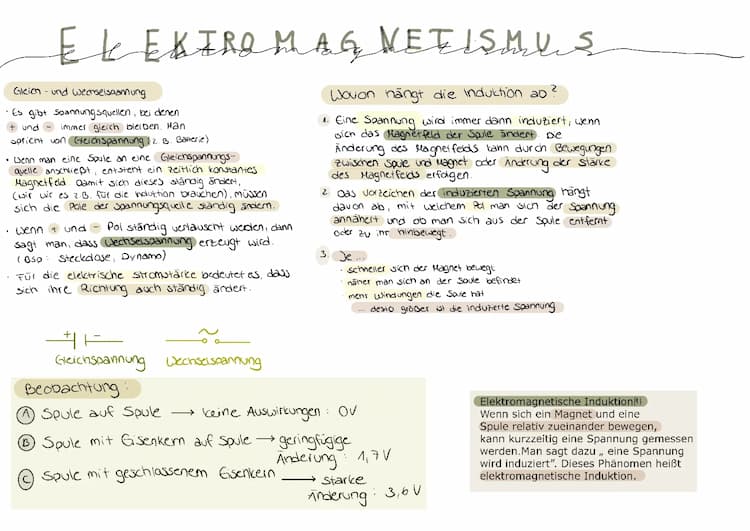 ELEKTROMAGNETISMUS
Gleich - und Wechselspannung
· Es gibt Spannungsquellen, bei denen
+ und - immer gleich bleiben. Man
spricht von Gleichspannung (z. B. Batterie)
· Wenn man eine Spule an eine Gleichspannungs-
quelle anschließt, entsteht ein zeitlich konstantes
Magnetfeld. Damit sich dieses ständig ändert,
(wir wie es z.B. für die Induktion brauchen), müssen
sich die Pole der Spannungsquelle ständig ändern.
· Wenn + und - Pol ständig vertauscht werden, dann
sagt man, dass Wechselspannung erzeugt wird.
(Bsp: Steckdose, Dynamo)
· Für die elektrische Stromstärke bedeutet es, dass
sich ihre Richtung auch ständig ändert.
+ -
Gleichspannung
~
Wechselspannung
Wovon hängt die Induktion ab?
1. Eine Spannung wird immer dann induziert, wenn
sich das Magnetfeld der Spule ändert. Die
Änderung des Magnetfelds kann durch Bewegungen
zwischen Spule und Magnet oder Änderung der Stärke
des Magnetfelds erfolgen.
2. Das Vorzeichen der induzierten Spannung hängt
davon ab, mit welchem Pol man sich der Spannung
annähert und ob man sich aus der Spule entfernt
oder zu ihr hinbewegt.
3. Je...
· schneller sich der Magnet bewegt
· näher man sich an der Spule befindet
· mehr Windungen die Spule hat
... desto größer ist die induzierte Spannung
Beobachtung:
A Spule auf Spule → keine Auswirkungen: 0V
B Spule mit Eisenkern auf Spule → geringfügige
Änderung: 1,7V
C Spule mit geschlossenem Eisenkern → starke
Änderung: 3,6V
Elektromagnetische Induktion!!!
Wenn sich ein Magnet und eine
Spule relativ zueinander bewegen,
kann kurzzeitig eine Spannung gemessen
werden.Man sagt dazu „ eine Spannung
wird induziert". Dieses Phänomen heißt
elektromagnetische Induktion.